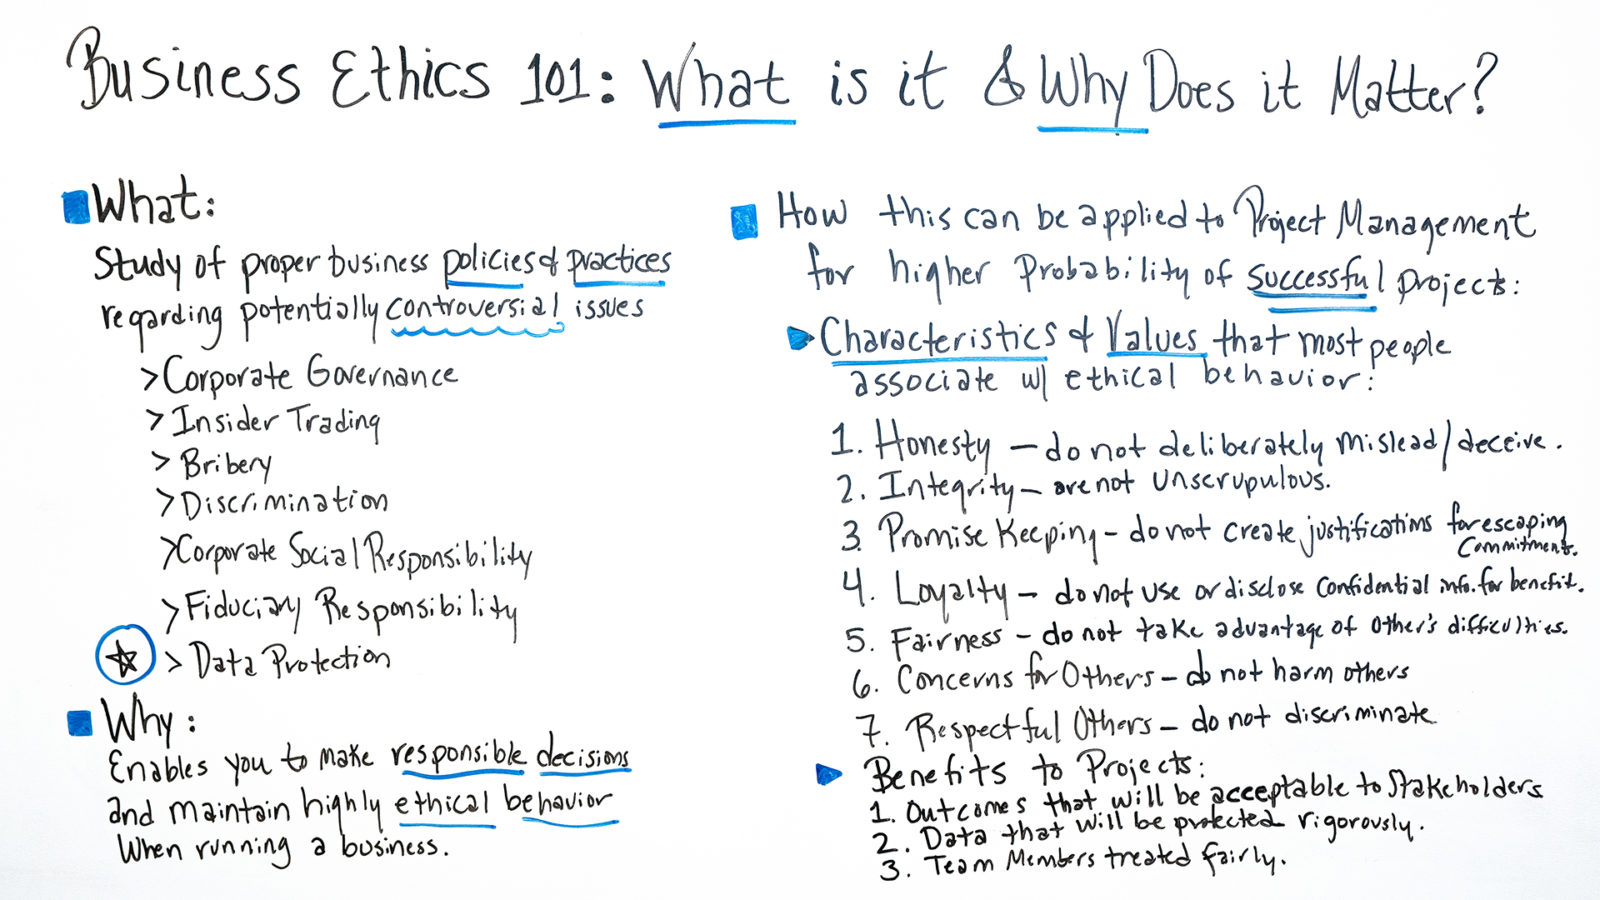 Business Ethics 101: What is it & Why Does it Matter?
What:
Study of proper business policies & practices
regarding potentially controversial issues
> Corporate Governance
> Insider Trading
> Bribery
> Discrimination
> Corporate Social Responsibility
> Fiduciary Responsibility
> Data Protection
Why:
Enables you to make responsible decisions
and maintain highly ethical behavior
When running a business.
How this can be applied to Project Management
for higher Probability of successful projects:
Characteristics & Values that most people
associate w/ ethical behavior:
1. Honesty – do not deliberately mislead/deceive.
2. Integrity – are not unscrupulous.
3. Promise Keeping – do not create justifications for escaping
Commitments.
4. Loyalty – do not use or disclose confidential info. for benefit.
5. Fairness – do not take advantage of other's difficulties.
6. Concerns for Others – do not harm others
7. Respectful Others – do not discriminate
Benefits to Projects:
1. Outcomes that will be acceptable to Stakeholders
2. Data that will be protected rigorously.
3. Team Members treated fairly.